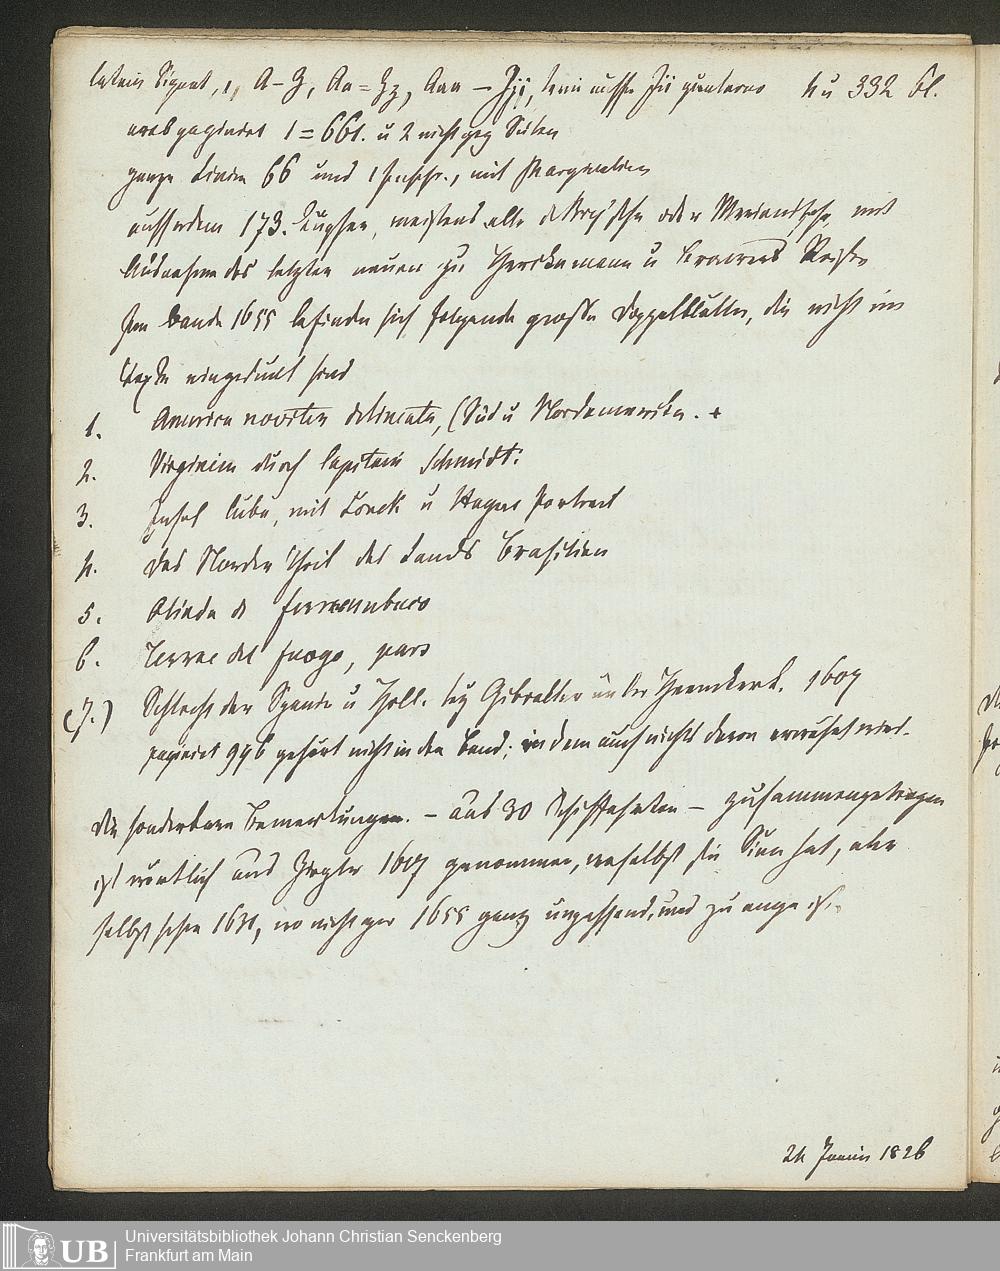 latein Signat, 1, A–Z, Aa=Zz, Aaa – Jjj, 4 u 332 Bl.
1=661. u 2 nicht gez Seiten
ganze Linien 66 und 1 mit Marginalien
ausserdem 173. Kupfer, meistens alte de Bry'sche oder Meriansche, mit
Ausnahme des letzten neuen zu Herckemann u Brawers Reise
Im Bande 1655 befinden sich folgende große Doppelblätter, die nicht im
Texte eingedruckt sind
1. America noviter delineata, (Süd u Nordamerika. +
2. Virginien durch Capitain Schmidt.
3. Insel Cuba, mit Lonck u Wagner Portrait
4. Das Norder Theil des Lands Brasilien
5. Olinda de Fernambuco
6. Terrae del Fuogo, pars
(7.) Schlacht der Spanier u Holl. bey Gibraltar unter Heemskerk. 1607
paginirt 996 gehört nicht in den Band; indem auch nichts davon erwähnt wird.
Die sonderbare Bemerkungen. – aus 30 Schifffahrten – zusammengetragen
ist wörtlich aus Ziegler 1617 genommen, woselbst sie Sinn hat, aber
selbst schon 1631, wo nicht gar 1655 ganz unpassend, und zu
24 Junius 1826
UB Universitätsbibliothek Johann Christian Senckenberg
Frankfurt am Main